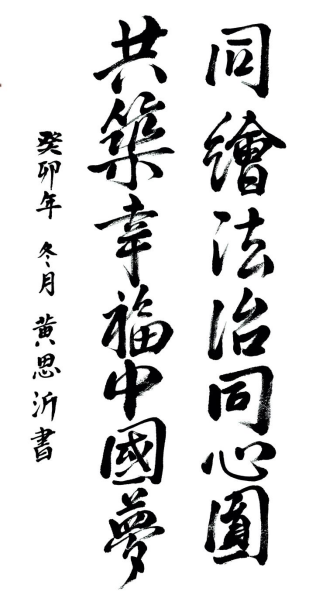 同繪法治同心圓
共築幸福中國夢
癸卯年 冬月 黃思沂書